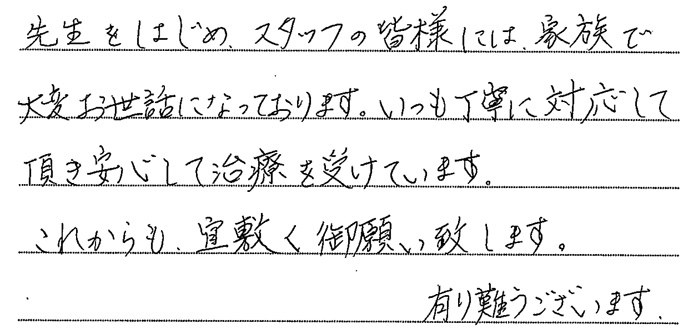 先生をはじめ、スタッフの皆様には、家族で
大変お世話になっております。いつも丁寧に対応して
頂き安心して治療を受けています。
これからも、宜敷く御願い致します。
有り難うございます。